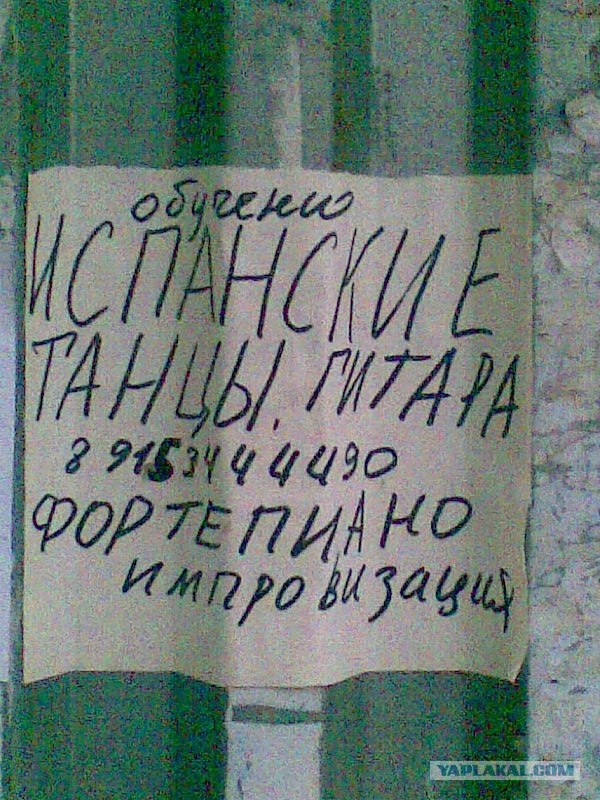 обучению
ИСПАНСКИЕ
ТАНЦЫ. ГИТАРА
8 915 34 4 4 490
ФОРТЕПИАНО
импровизация
YAPLAKAL.COM